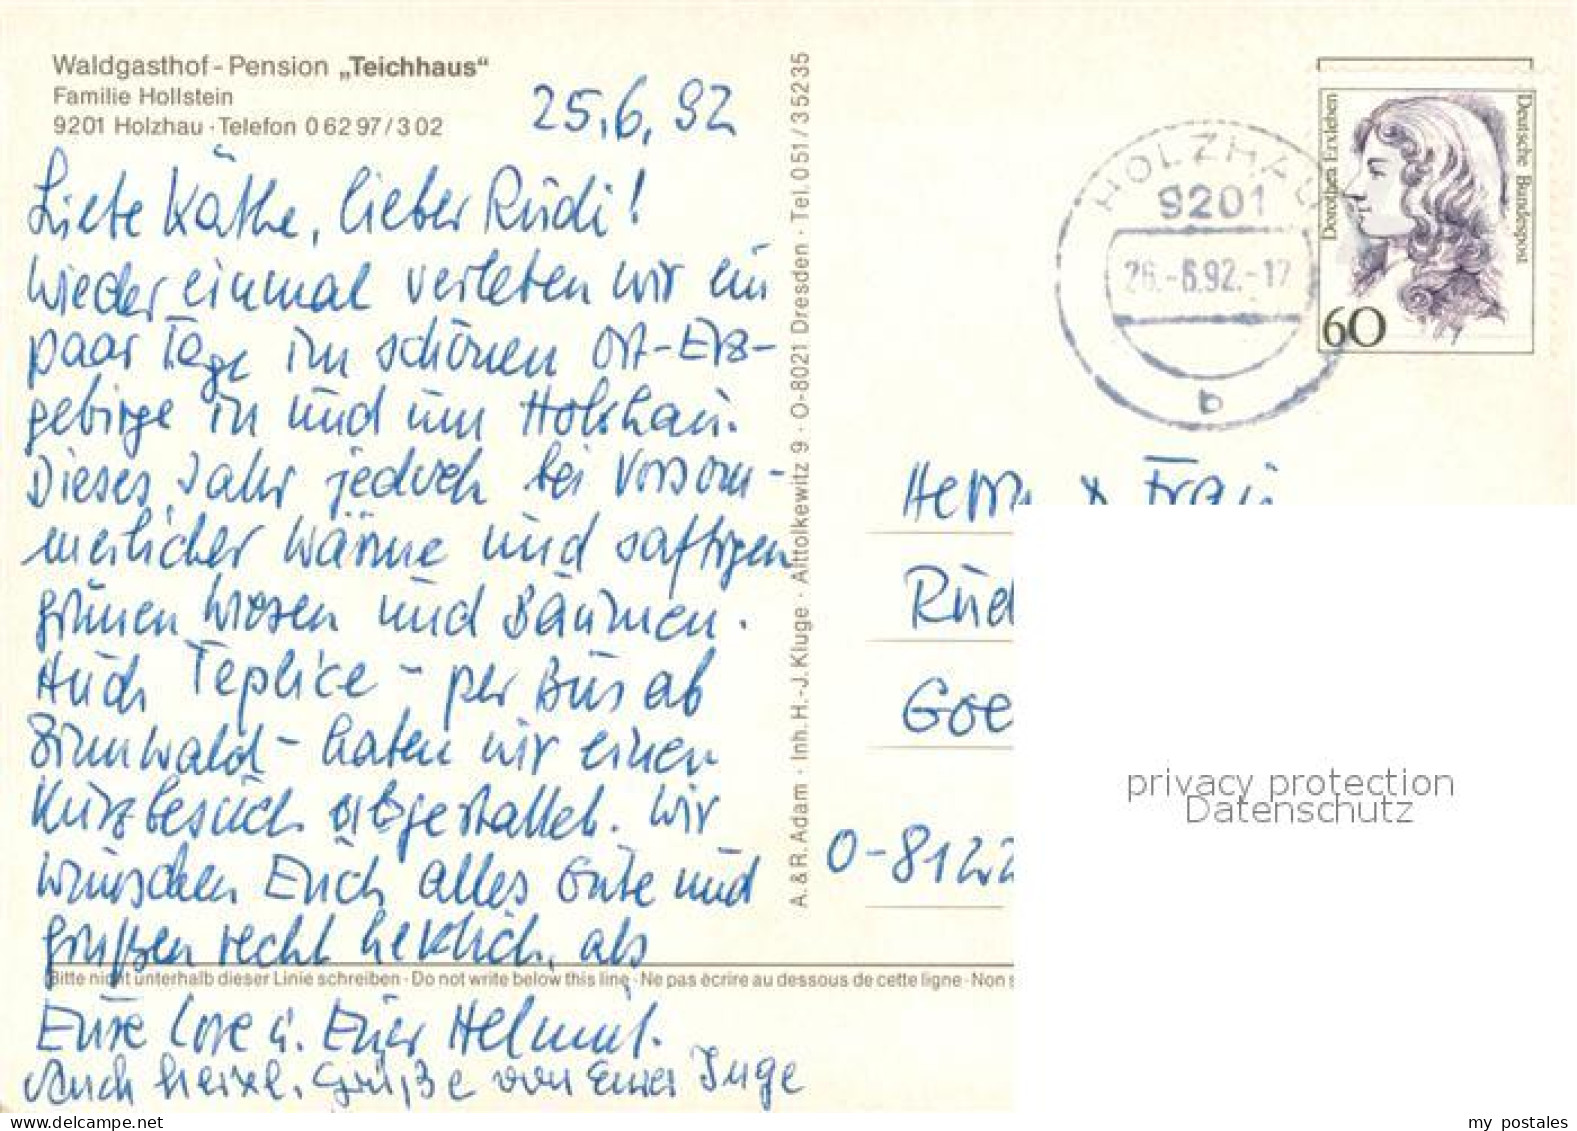 Waldgasthof-Pension „Teichhaus“
Familie Hollstein
9201 Holzhau · Telefon 0 62 97 / 3 02
25.6.92
Liebe Käthe, lieber Rudi!
Wieder einmal verleben wir ein
paar Tage im schönen Ost-Erz-
gebirge in und um Holzhau.
Dieses Jahr jedoch bei vorsom-
merlicher Wärme und saftigen
grünen Wiesen und Bäumen.
Auch Teplice - per Bus ab
Zinnwald - haben wir einen
Kurzbesuch abgestattet. Wir
wünschen Euch alles Gute und
grüßen recht herzlich, als
Bitte nicht unterhalb dieser Linie schreiben · Do not write below this line · Ne pas écrire au dessous de cette ligne · Non s
Eure Lore u. Euer Helmut.
Auch herzl. Grüße von Eurer Inge
A. & R. Adam · Inh. H.-J. Kluge · Alttolkewitz 9 · O-8021 Dresden · Tel. 051/35235
HOLZHAU
9201
26.-6.92.-17
b
Dorothea Erxleben
Deutsche Bundespost
60
Herrn & Frau
Rud
Goe
O-8122
privacy protection
Datenschutz
www.delcampe.net
my_postales